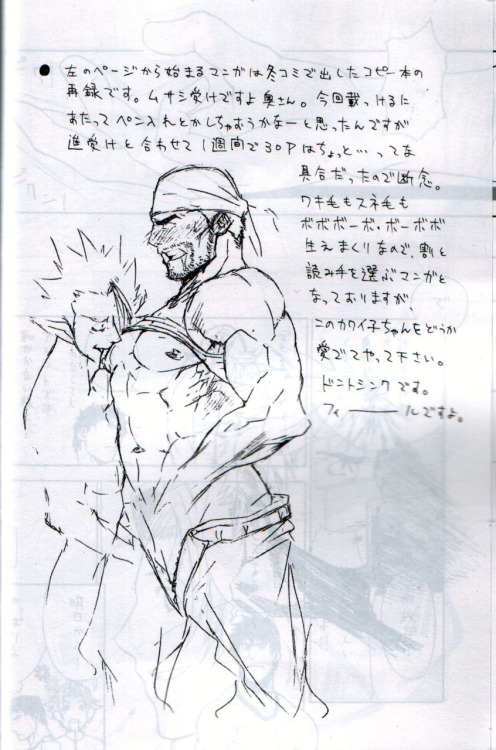 ● 左のページから始まるマンガは冬コミで出したコピー本の
再録です。ムサシ受けですよ奥さん。今回載っけるに
あたってペン入れとかしちゃおうかなーと思ったんですが
進受けと合わせて1週間で30Pはちょっと…ってな
具合だったので断念。
ワキ毛もスネ毛も
ボボボーボ・ボーボボ
生えまくりなので、割と
読み手を選ぶマンガと
なっておりますが、
このカワイ子ちゃんをどうか
愛でてやって下さい。
ドントシンクです。
フィールですよ。